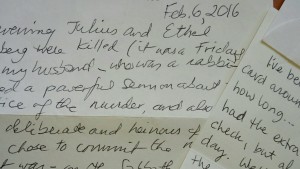 Feb. 6, 2016
evening Julius and Ethel
berg were killed (it was a Friday
my husband - who was a rabbi
ed a powerful sermon about
ice of the murder, and also
deliberate and heinous
chose to commit the
day.
was - on the Sabbath
We be
card aroun
how long...
had the extra
check, but al
the